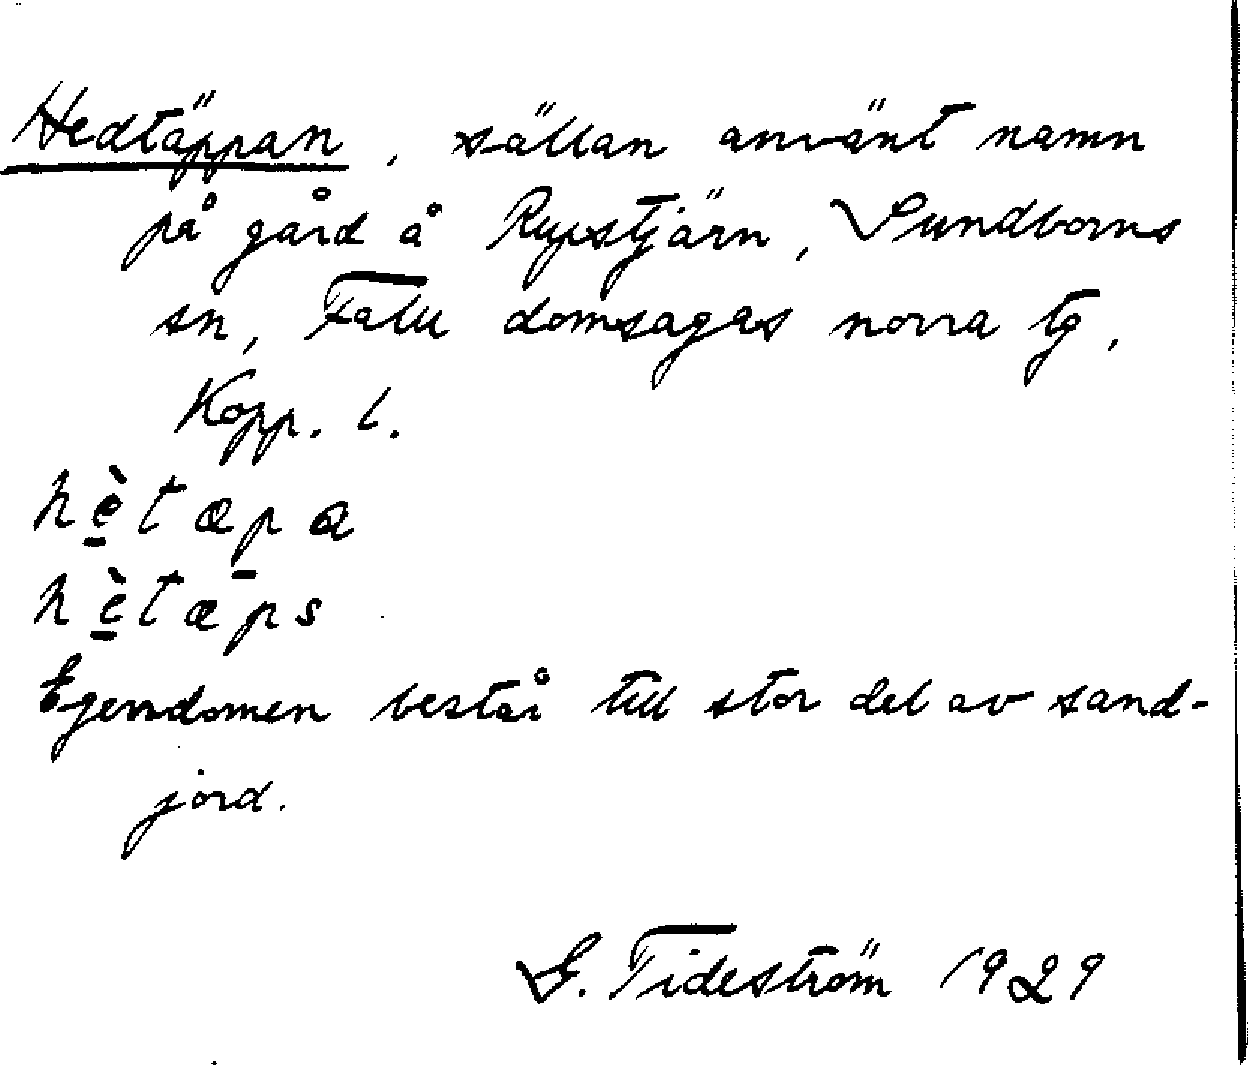 Hedtäppan, sällan använt namn
på gård å Rupstjärn, Sundborns
sn, Falu domsagas norra tg,
Kopp. l.
hè̠tæp̠a
hè̠tæps
Egendomen består till stor del av sand-
jord.
G. Tideström 1929